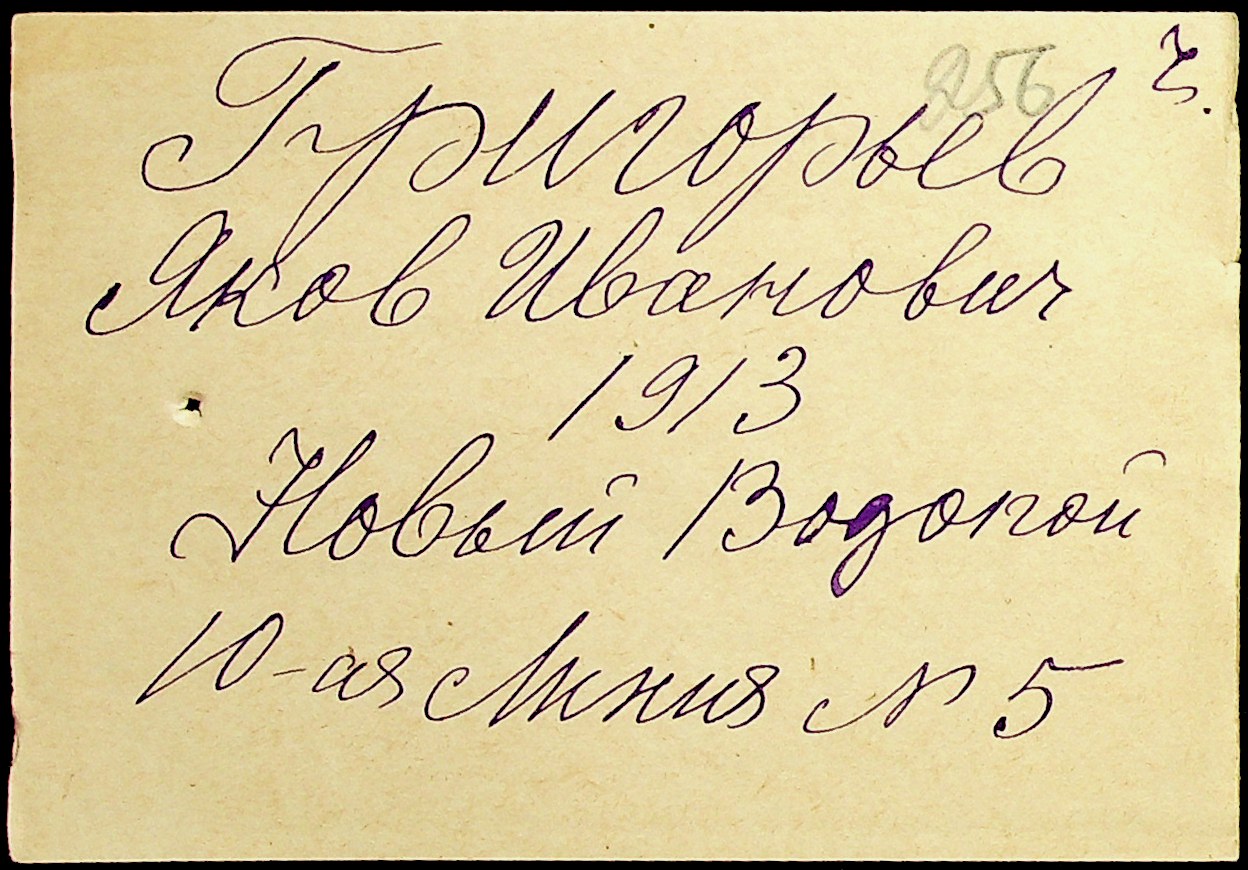 256
Григорьев
Яков Иванович
1913
Новый Водопой
10-ая Линия № 5